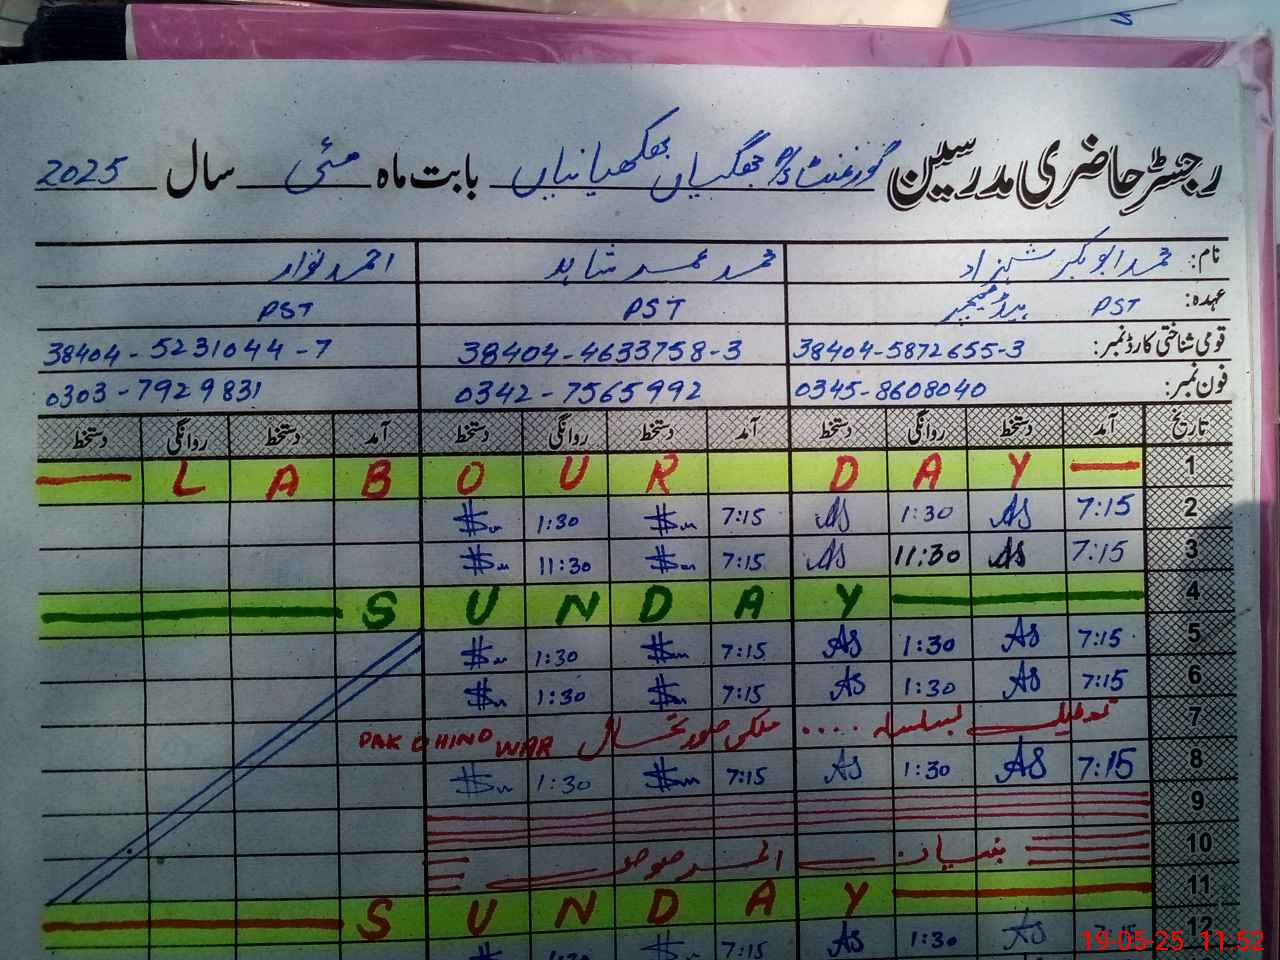 رجسٹر حاضری مدرسین گورنمنٹ P/S جھگیاں بھکھیانیاں بابت ماہ مئی سال 2025
نام: محمد ابوبکر شہزاد محمد عمر شاہد احمد نواز
عہدہ: PST ہیڈ ٹیچر PST PST
قومی شناختی کارڈ نمبر: 38404-5872655-3 38404-4633758-3 38404-5231044-7
فون نمبر: 0345-8608040 0342-7565992 0303-7929831
تاریخ آمد دستخط روانگی دستخط آمد دستخط روانگی دستخط آمد دستخط روانگی دستخط
1 LABOUR DAY
2 7:15 AS 1:30 AS 7:15 1:30
3 7:15 AS 11:30 AS 7:15 11:30
4 SUNDAY
5 7:15 AS 1:30 AS 7:15 1:30
6 7:15 AS 1:30 AS 7:15 1:30
7 بسلسلہ .... ملکی صورتحال PAK O HIND WAR
8 7:15 AS 1:30 AS 7:15 1:30
9
10 بنیان المرصوص
11 SUNDAY
12 7:15 AS 1:30 AS 7:15 1:30
19-05-25 11:52